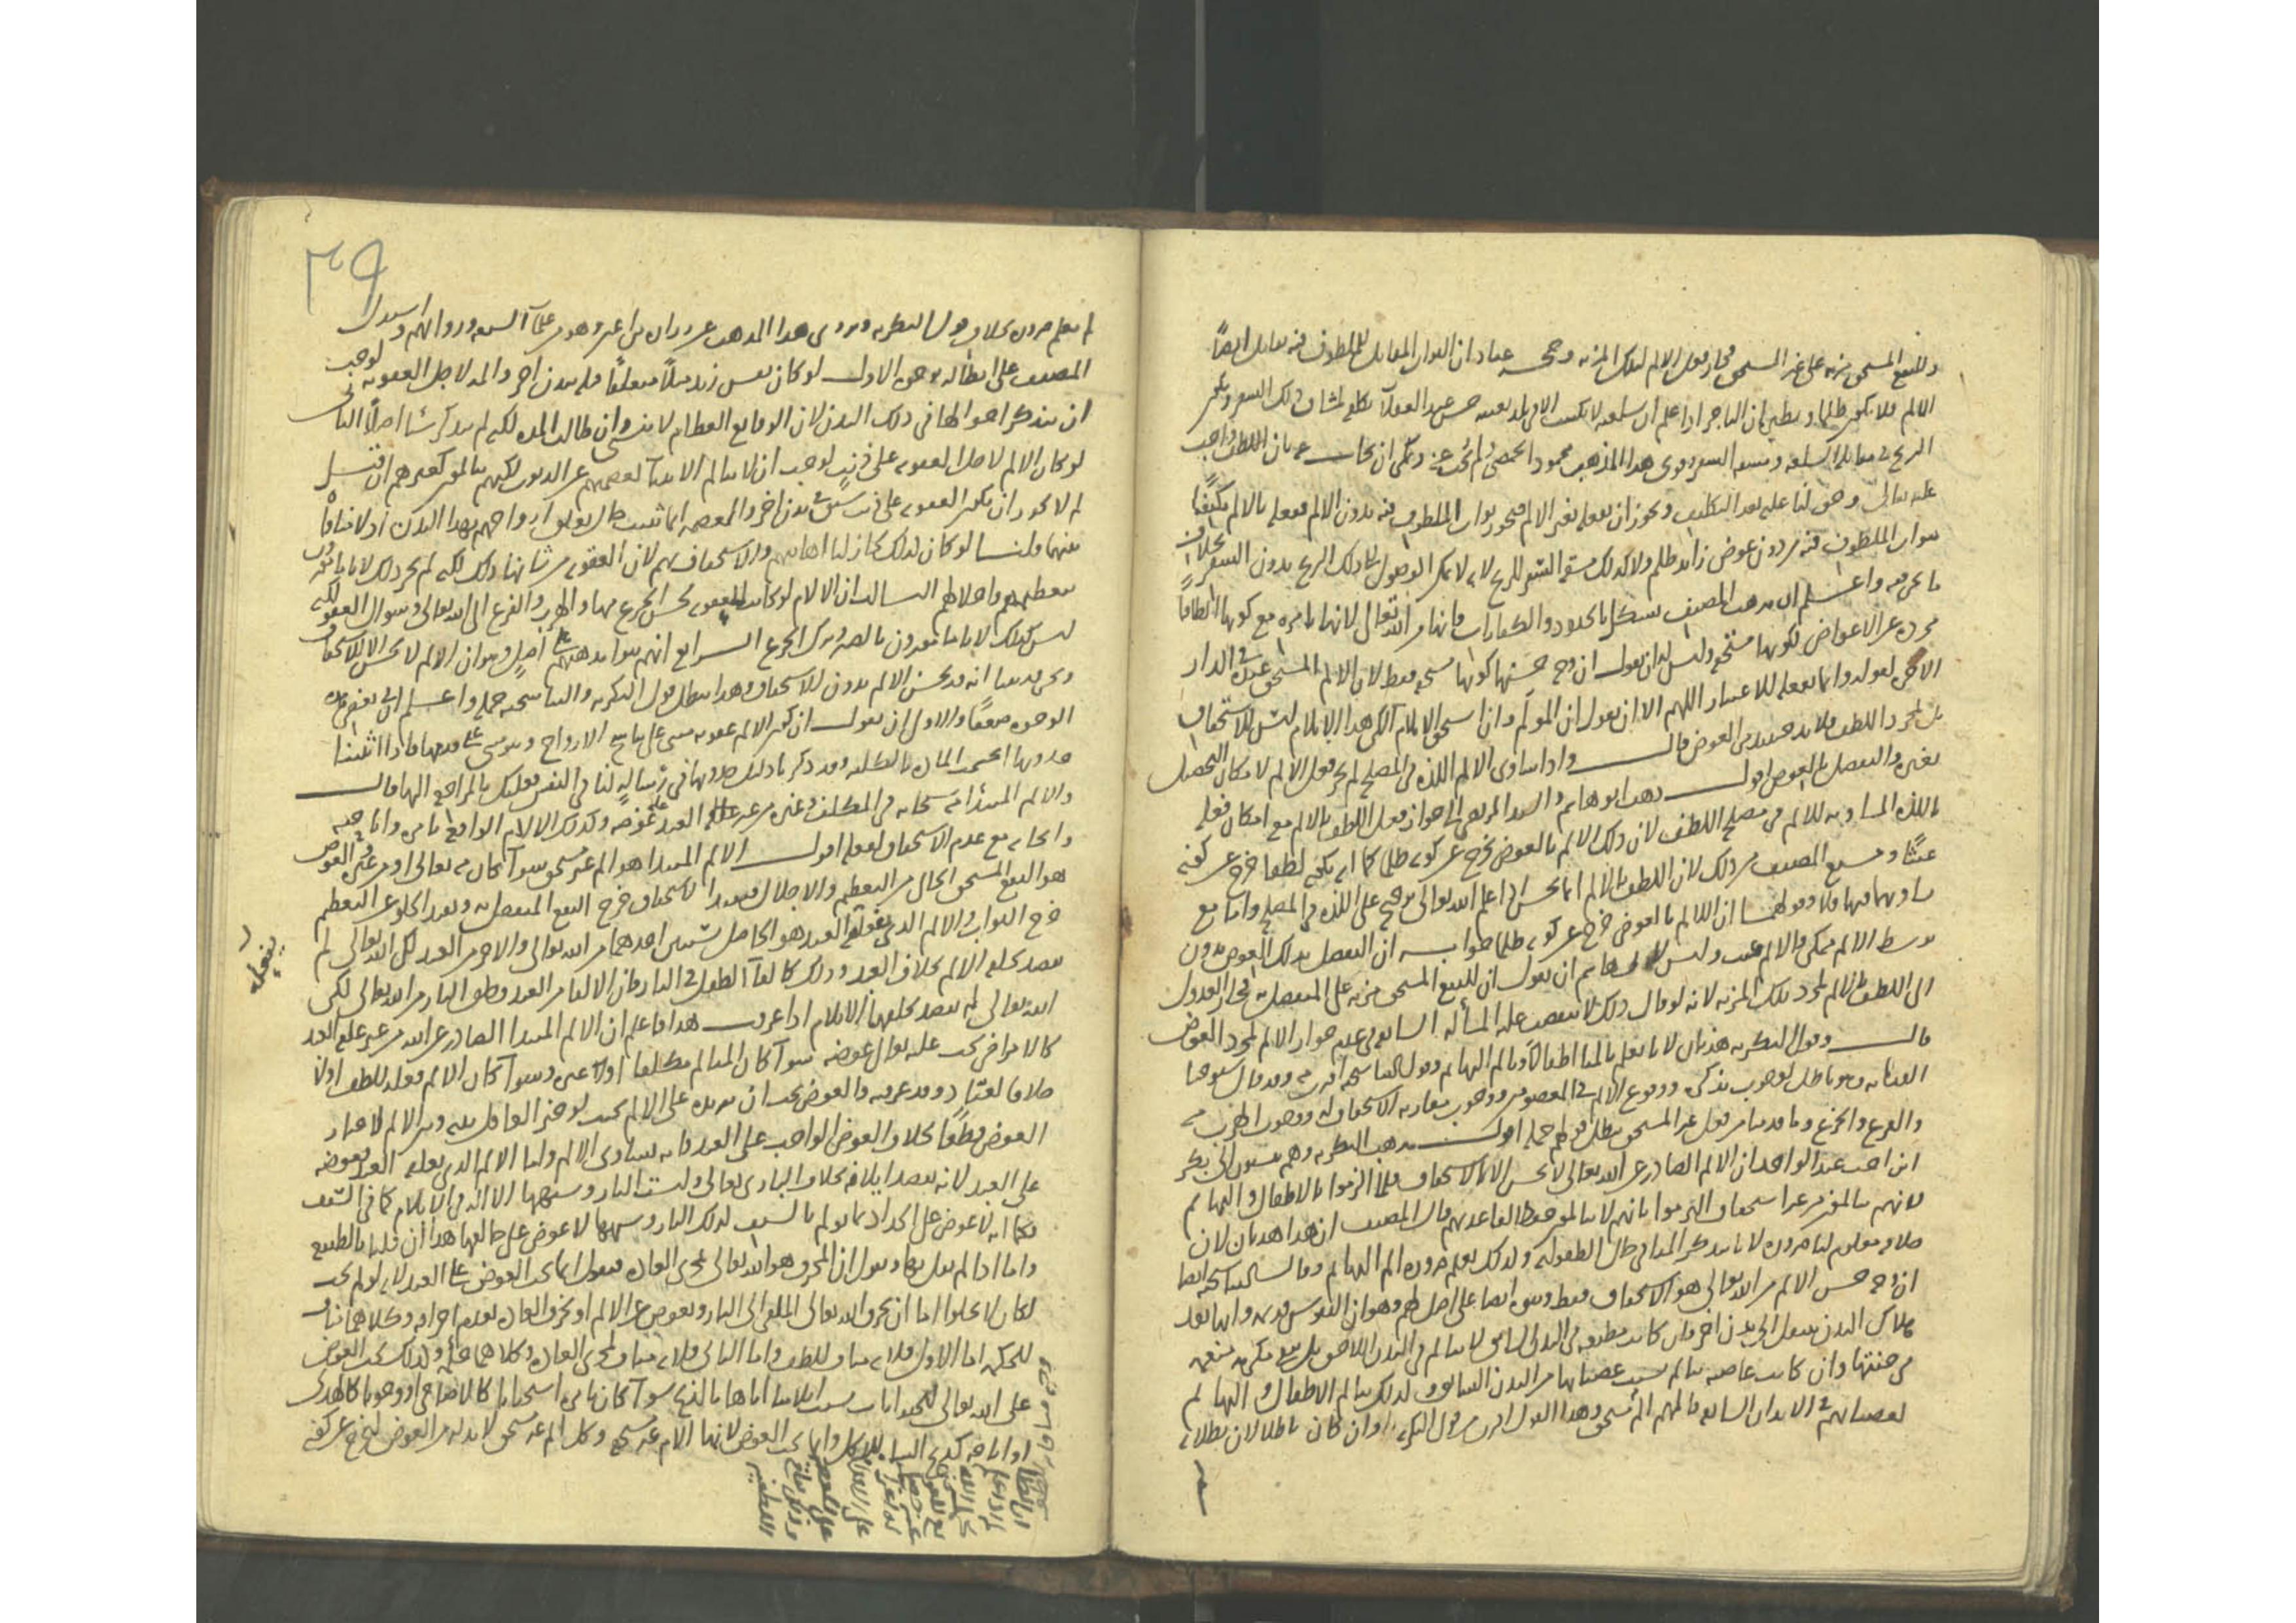 وللنفع المستحق مزية على غير المستحق فجاز فعل الالم لتلك المزية وحجة عباد ان الثواب المقابل للملطوف فيه مقابل ايضاً
الالم فلا يكون ظلما ويطهر ان التاجر اذا علم ان سلعته لا تكتسب الا في بلد بعينه حسن عند العقلاء تكلفه لمشاق ذلك السفر ويكون
الربح في مقابلة السلعة ومشقة السفر وقوى هذا المذهب محمود الحمصي ولم يجب عنه ويمكن ان يجاب عنه بان اللطف واجب
عليه تعالى وحق لنا عليه بعد التكليف ويجوز ان يفعله بغير الالم فيحوز ثواب الملطوف فيه بدون الالم ففعله بالالم
ثواب الملطوف فيه من دون عوض زائد ظلم ولا كذلك مشقة السفر للربح لانه لا يمكن الوصول الى ذلك الربح بدون السفر بخلاف
ما نحن فيه واعلم ان مذهب المصنف يشكل بالحدود والكفارات فانها من الله تعالى لانها بامره مع كونها الطافاً
مجردة عن الاعواض لكونها مستحقة وليس له ان يقول ان وجه حسنها كونها مستحقة فقط لان الالم المستحق عنده في الدار
الاخرى لقوله وانما يفعله للاعتبار اللهم الا ان يقول ان المولم وان استحق الايلام لكن هذا الايلام ليس للاستحقاق
بل لمجرد اللطف فلا بد حينئذ من العوض قال واذا ساوى الالم اللذة في المصلحة لم يجز فعل الالم لامكان التحصيل
بغيره والتفضل بالعوض اقول ذهب ابو هاشم والسيد المرتضى الى جواز فعل اللطف بالالم مع امكان فعله
باللذة المساوية للالم في مصلحة اللطف لان ذلك الالم بالعوض يخرج عن كونه ظلما كما انه بكونه لطفا خرج عن كونه
عبثا ومنع المصنف من ذلك لان اللطف بالالم انما يحسن اذا علم الله تعالى ترجحه على اللذة في المصلحة واما مع
تساويهما فيها فلا وقولهما ان الالم بالعوض خرج عن كونه ظلما جوابه ان التفضل بذلك العوض بدون
توسط الالم ممكن فالالم عبث وليس لابي هاشم ان يقول ان للنفع المستحق مزية على المتفضل به فجاز العدول
الى اللطف بالالم لمجرد تلك المزية لانه لو قال ذلك لانتقضت عليه المسألة السابقة في عدم جواز الالم لمجرد العوض
قال وقول البكرية هذيان لانا نعلم تألمنا اطفالا وتألم البهائم وقول التناسخية اقرب منه وقد قال شيوخنا
العدلية وهو باطل لوجوب تذكره ووقوع الالم في المعصومين ووجوب مقارنة الاستحقاق له ووجوب الهرب منه
والفزع والجزع وما قدمنا من فعل غير المستحق يبطل قولهم جملة اقول مذهب البكرية وهم منسوبون الى بكر
ابن اخت عبد الواحد ان الالم الصادر عن الله تعالى لا يحسن الا للاستحقاق فلما الزموا بالاطفال والبهائم
لانهم يتألمون من غير استحقاق التزموا بانهم لا يتألمون حفظا لقاعدتهم قال المصنف ان هذا هذيان لان
خلافه معلوم لنا ضرورة لانا نتذكر المنا في حال الطفولية وكذلك نعلم ضرورة الم البهائم وقالت التناسخية ايضا
ان وجه حسن الالم من الله تعالى هو الاستحقاق فقط وبنوه ايضا على اصل لهم وهو ان النفوس قديمة وانها بعد
هلاك البدن تنتقل الى بدن اخر فان كانت مطيعة في البدن السابق لا تتألم في البدن اللاحق بل تبقى مكرمة منعمة
في جنتها وان كانت عاصية تتألم بسبب عصيانها من البدن السابق ولذلك يتألم الاطفال والبهائم
لعصيانهم في الابدان السابقة فالمهم الم مستحق وهذا القول اقرب من قول البكرية وان كان باطلا لان بطلانه
٣٩
لم يعلم ضرورة بخلاف قول البكرية
المصنف على ابطاله بوجوه الاول لو كان نفس زيد مثلاً متعلقاً قبله ببدن اخر والمه لاجل العقوبة لوجب
ان يتذكر احوالها في ذلك البدن لان الوقايع العظام لا تنسى وان طالت المدة لكنه لم يتذكر شيئا اصلاً الثاني
لو كان الالم لاجل العقوبة على ذنب لوجب ان لا يتألم الانبياء لعصمتهم عن الذنوب لكنهم يتألمون كغيرهم ان قيل
لم لا يجوز ان يكون العقوبة على ذنب سبق في بدن اخر والعصمة انما ثبتت حال تعلق ارواحهم بهذا البدن اذ لا تنافي
بينهما قلنا لو كان كذلك لجاز لنا اهانتهم والاستخفاف بهم لان العقوبة من شأنها ذلك لكنه لم يجز ذلك لانا مأمورون
بتعظيمهم واجلالهم الثالث ان الالام لو كانت للعقوبة لحسن الجزع منها والهرب والفزع الى الله تعالى وسؤال العفو لكنه
ليس كذلك لانا مأمورون بالصبر وترك الجزع الرابع انهم بنوا مذهبهم على اصل وهو ان الالم لا يحسن الا للاستحقاق
ونحن قد بينا انه قد يحسن الالم بدون الاستحقاق وهذا يبطل قول البكرية والتناسخية جملة واعلم ان في بعض هذه
الوجوه ضعفا والاولى ان نقول ان كون الالم عقوبة مبني على تناسخ الارواح وهو مبني على قدمها فاذا اثبتنا
حدوثها انحسمت المادة بالكلية وقد ذكرنا دليل حدوثها في رسالة لنا في النفس فعليك بالمراجعة اليها قال
والالم المبتدأ منه سبحانه في المكلف وغيره من غير علة العبد عليه عوضه وكذلك الالام الواقعة بامره واباحته
والجائه مع عدم الاستحقاق لفعله اقول الالم المبتدا هو الم غير مستحق سواء كان منه تعالى او من غيره والعوض
هو النفع المستحق الخالي من التعظيم والاجلال فبقيد الاستحقاق خرج النفع المتفضل به وبقيد الخلو عن التعظيم
خرج الثواب والالم الذي يفعله العبد هو الحاصل بشيئين احدهما من الله تعالى والاخر من العبد لكن الله تعالى لم
يقصد بخلقه الالم بخلاف العبد وذلك كالقاء الطفل في النار فان الالقاء من العبد وخلق النار من الله تعالى لكن
الله تعالى لم يقصد بخلقها الايلام اذا عرفت هذا فاعلم ان الالم المبتدا الصادر عن الله من غير علة العبد
كالامراض يجب عليه تعالى عوضه سواء كان المتألم مكلفا او لا وسواء كان الالم فعله للطف او لا
خلافا لعباد وقد عرفته والعوض يجب ان يزيد على الالم بحيث لو خير العاقل بينه وبين الالم لاختار
العوض قطعا بخلاف العوض الواجب على العبد فانه يساوي الالم واما الالم الذي يفعله العبد فعوضه
على العبد لانه قصد ايلامه بخلاف الباري تعالى وليست النار وشبهها الا الة في الايلام كما في السيف
فكما انه لا عوض على الحداد فيما يولم بالسيف كذلك النار وشبهها لا عوض على خالقها هذا ان قلنا بالطبع
واما اذا لم نقل بها ونقول ان المحرق هو الله تعالى لمجرى العادة فنقول انما يجب العوض على العبد لانه لو لم يجب
لكان لا يخلوا اما ان يحرق الله تعالى الملقى الى النار ويعوض عن الالم او يخرق العادة بعدم احراقه وكلاهما مناف
للحكمة اما الاول فلانه مناف للطف واما الثاني فلانه مناف لمجرى العادة وكلاهما وكذلك يجب العوض
على الله تعالى للحيوانات بسبب ايلامنا اياها بالذبح سواء كان بامره استحبابا كالاضاحي او وجوبا كالهدي
او اباحة كذبحه للاكل وانما يجب العوض لانها الام غير مستحقة وكل الم غير مستحق لا بد له من العوض ليخرج عن كونه